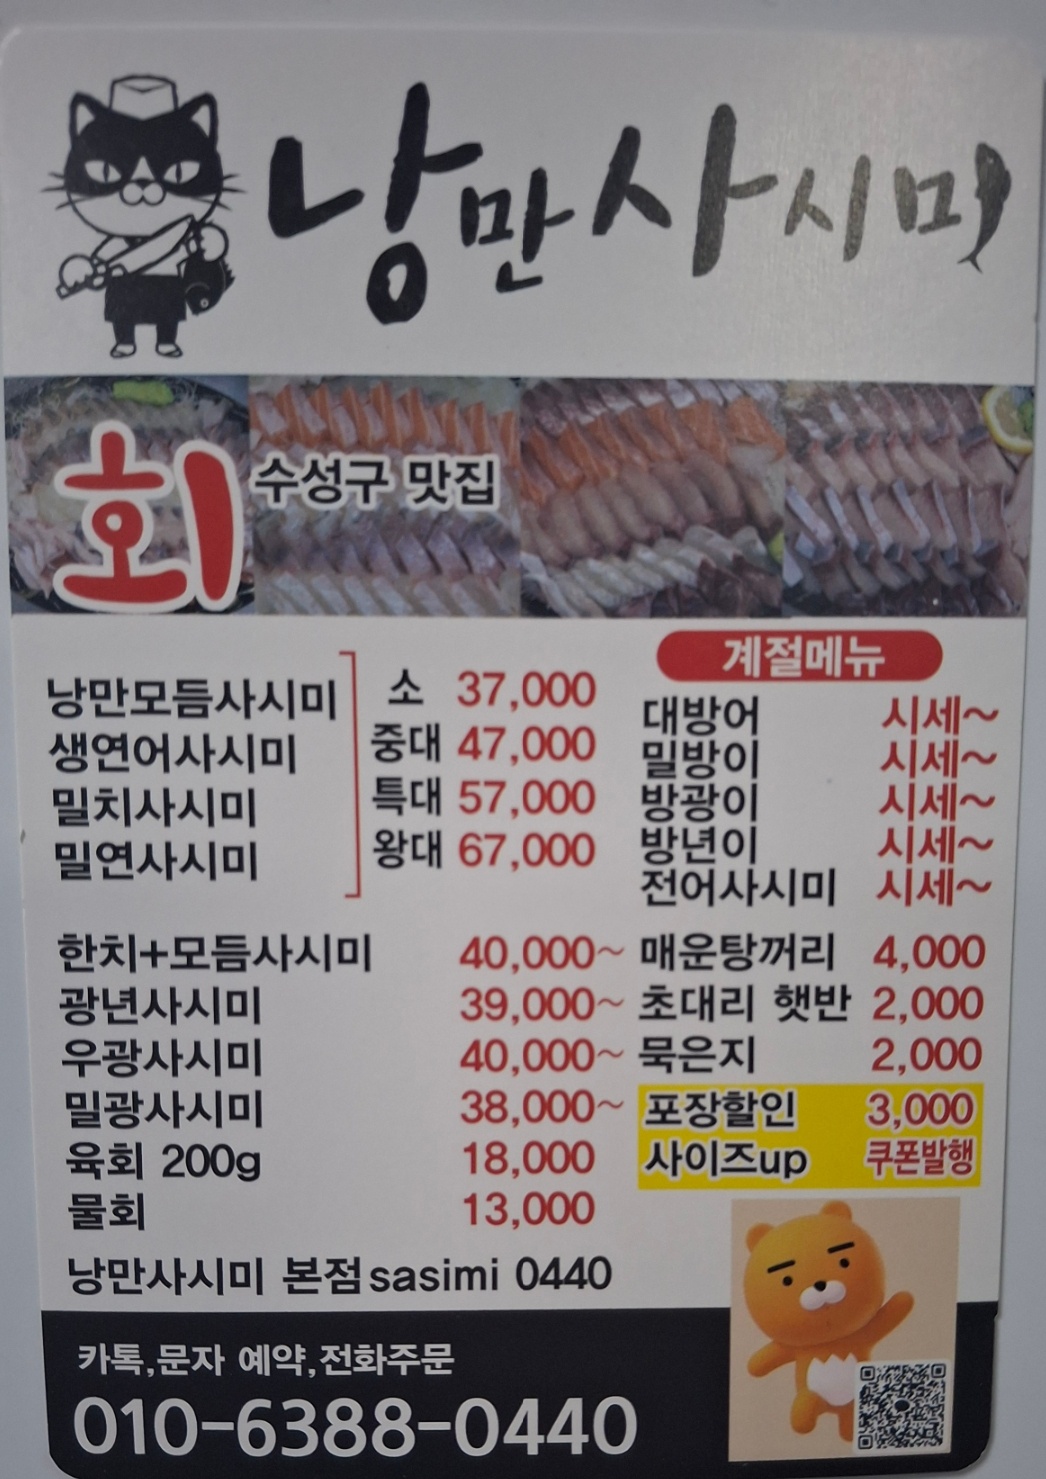 낭만사시미
회
수성구 맛집
낭만모듬사시미
생연어사시미
밀치사시미
밀연사시미
소 37,000
중대 47,000
특대 57,000
왕대 67,000
한치+모듬사시미 40,000~
광년사시미 39,000~
우광사시미 40,000~
밀광사시미 38,000~
육회 200g 18,000
물회 13,000
낭만사시미 본점 sasimi 0440
계절메뉴
대방어 시세~
밀방이 시세~
방광이 시세~
방년이 시세~
전어사시미 시세~
매운탕꺼리 4,000
초대리 햇반 2,000
묵은지 2,000
포장할인 3,000
사이즈up 쿠폰발행
카톡,문자 예약,전화주문
010-6388-0440